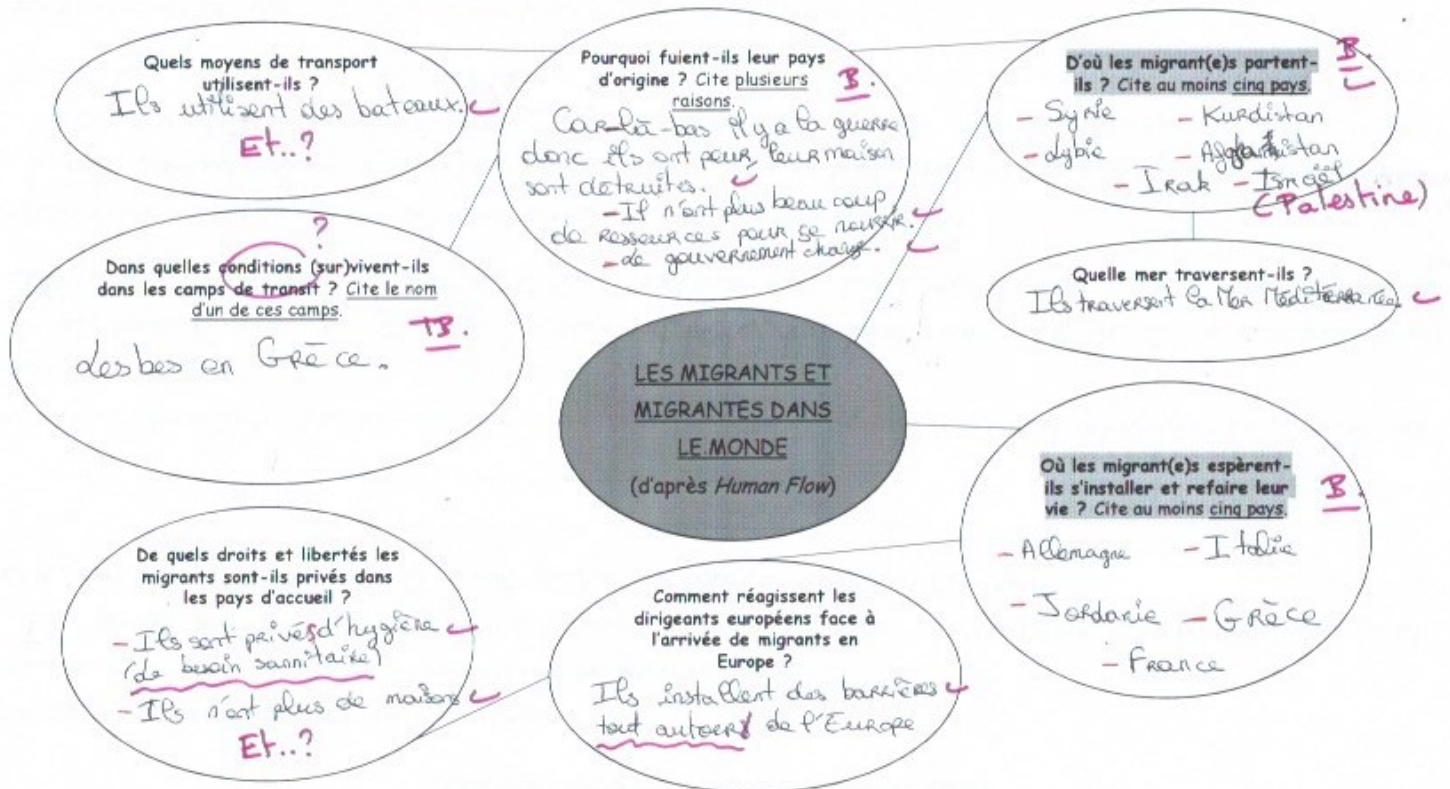 Quels moyens de transport
utilisent-ils ?
Ils utilisent des bateaux.
Et..?
Pourquoi fuient-ils leur pays
d'origine ? Cite plusieurs
raisons.
B.
Car là-bas il y a la guerre
donc ils ont peur, leur maison
sont detruites.
- Il n'ont plus beau coup
de ressources pour se nourrir.
- Le gouvernement change.
D'où les migrant(e)s partent-
ils ? Cite au moins cinq pays.
B.
- Syrie - Kurdistan
- Lybie
- Irak - Israël
(Palestine)
?
Dans quelles conditions (sur)vivent-ils
dans les camps de transit ? Cite le nom
d'un de ces camps.
TB.
Lesbes en Grèce.
Quelle mer traversent-ils ?
Ils traversent la Mer Méditerranée
LES MIGRANTS ET
MIGRANTES DANS
LE MONDE
(d'après Human Flow)
Où les migrant(e)s espèrent-
ils s'installer et refaire leur
vie ? Cite au moins cinq pays.
B.
- Allemagne - Italie
- Jordanie - Grèce
- France
De quels droits et libertés les
migrants sont-ils privés dans
les pays d'accueil ?
- Ils sont privés d'hygiène
(de besoin sannitaire)
- Ils n'ont plus de maisons
Et..?
Comment réagissent les
dirigeants européens face à
l'arrivée de migrants en
Europe ?
Ils installent des barrières
tout autour de l'Europe